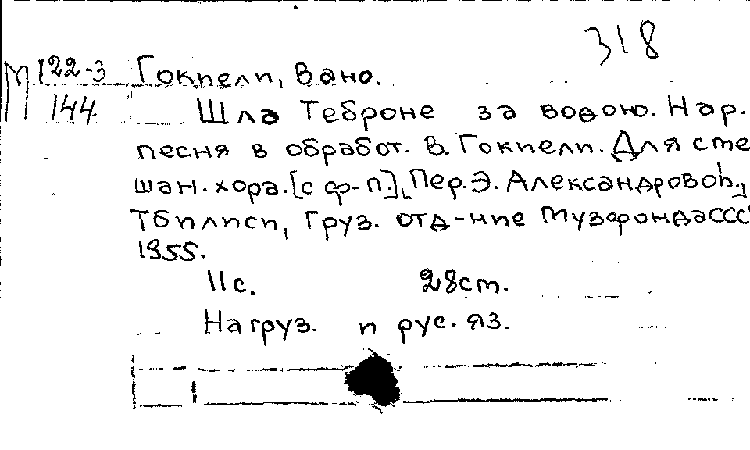 318
М 122-3 Гокиели, Вано.
144 Шла Теброне за водою. Нар.
песня в обработ. В. Гокиели. Для сме
шан. хора. [с ф-п.] [Пер. Э. Александровой.]
Тбилиси, Груз. отд-ние Музфонда ССС
1955.
11с. 28 ст.
На груз. и рус. яз.